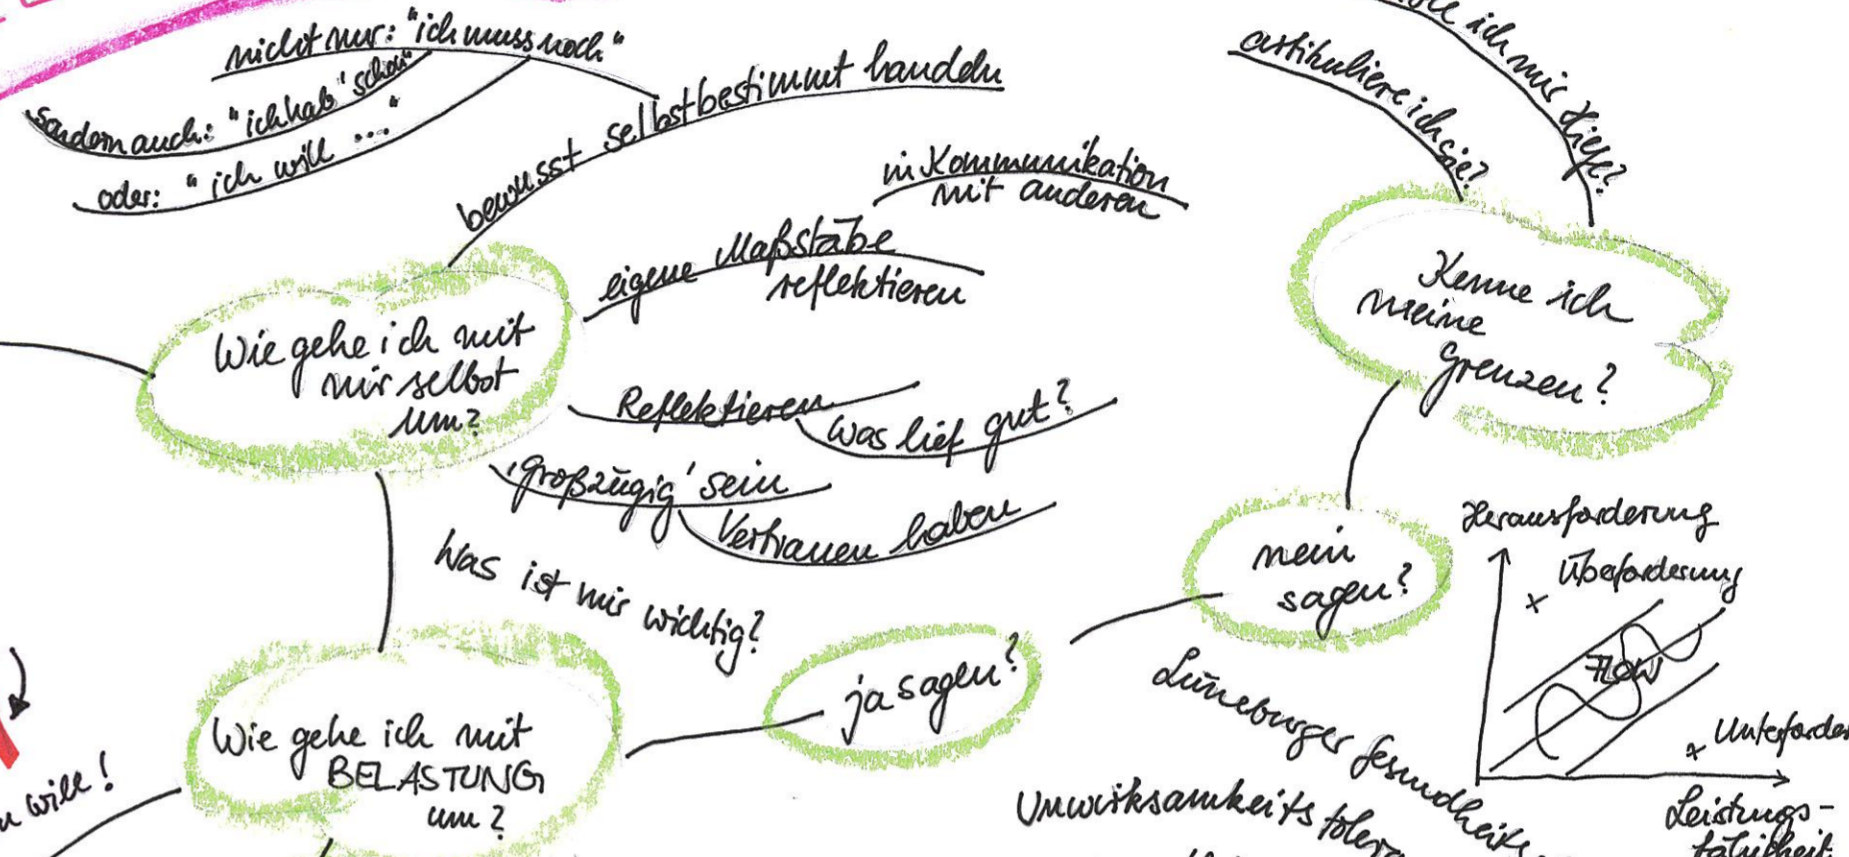 nicht nur: "ich muss noch"
sondern auch: "ich hab 'schon'"
oder: "ich will ..."
bewusst selbstbestimmt handeln
in Kommunikation
mit anderen
eigene Maßstäbe
reflektieren
Wie gehe ich mit
mir selbst
um?
Reflektieren
Was lief gut?
'großzügig' sein
Vertrauen haben
Was ist mir wichtig?
Wie gehe ich mit
BELASTUNG
um?
will!
ja sagen?
nein
sagen?
Kenne ich
meine
Grenzen?
artikuliere ich sie?
ich mir Hilfe?
Herausforderung
Überforderung
FLOW
Unterforder
Leistungs-
fähigkeit
Lüneburger Gesundheits
Unwirksamkeitstolera